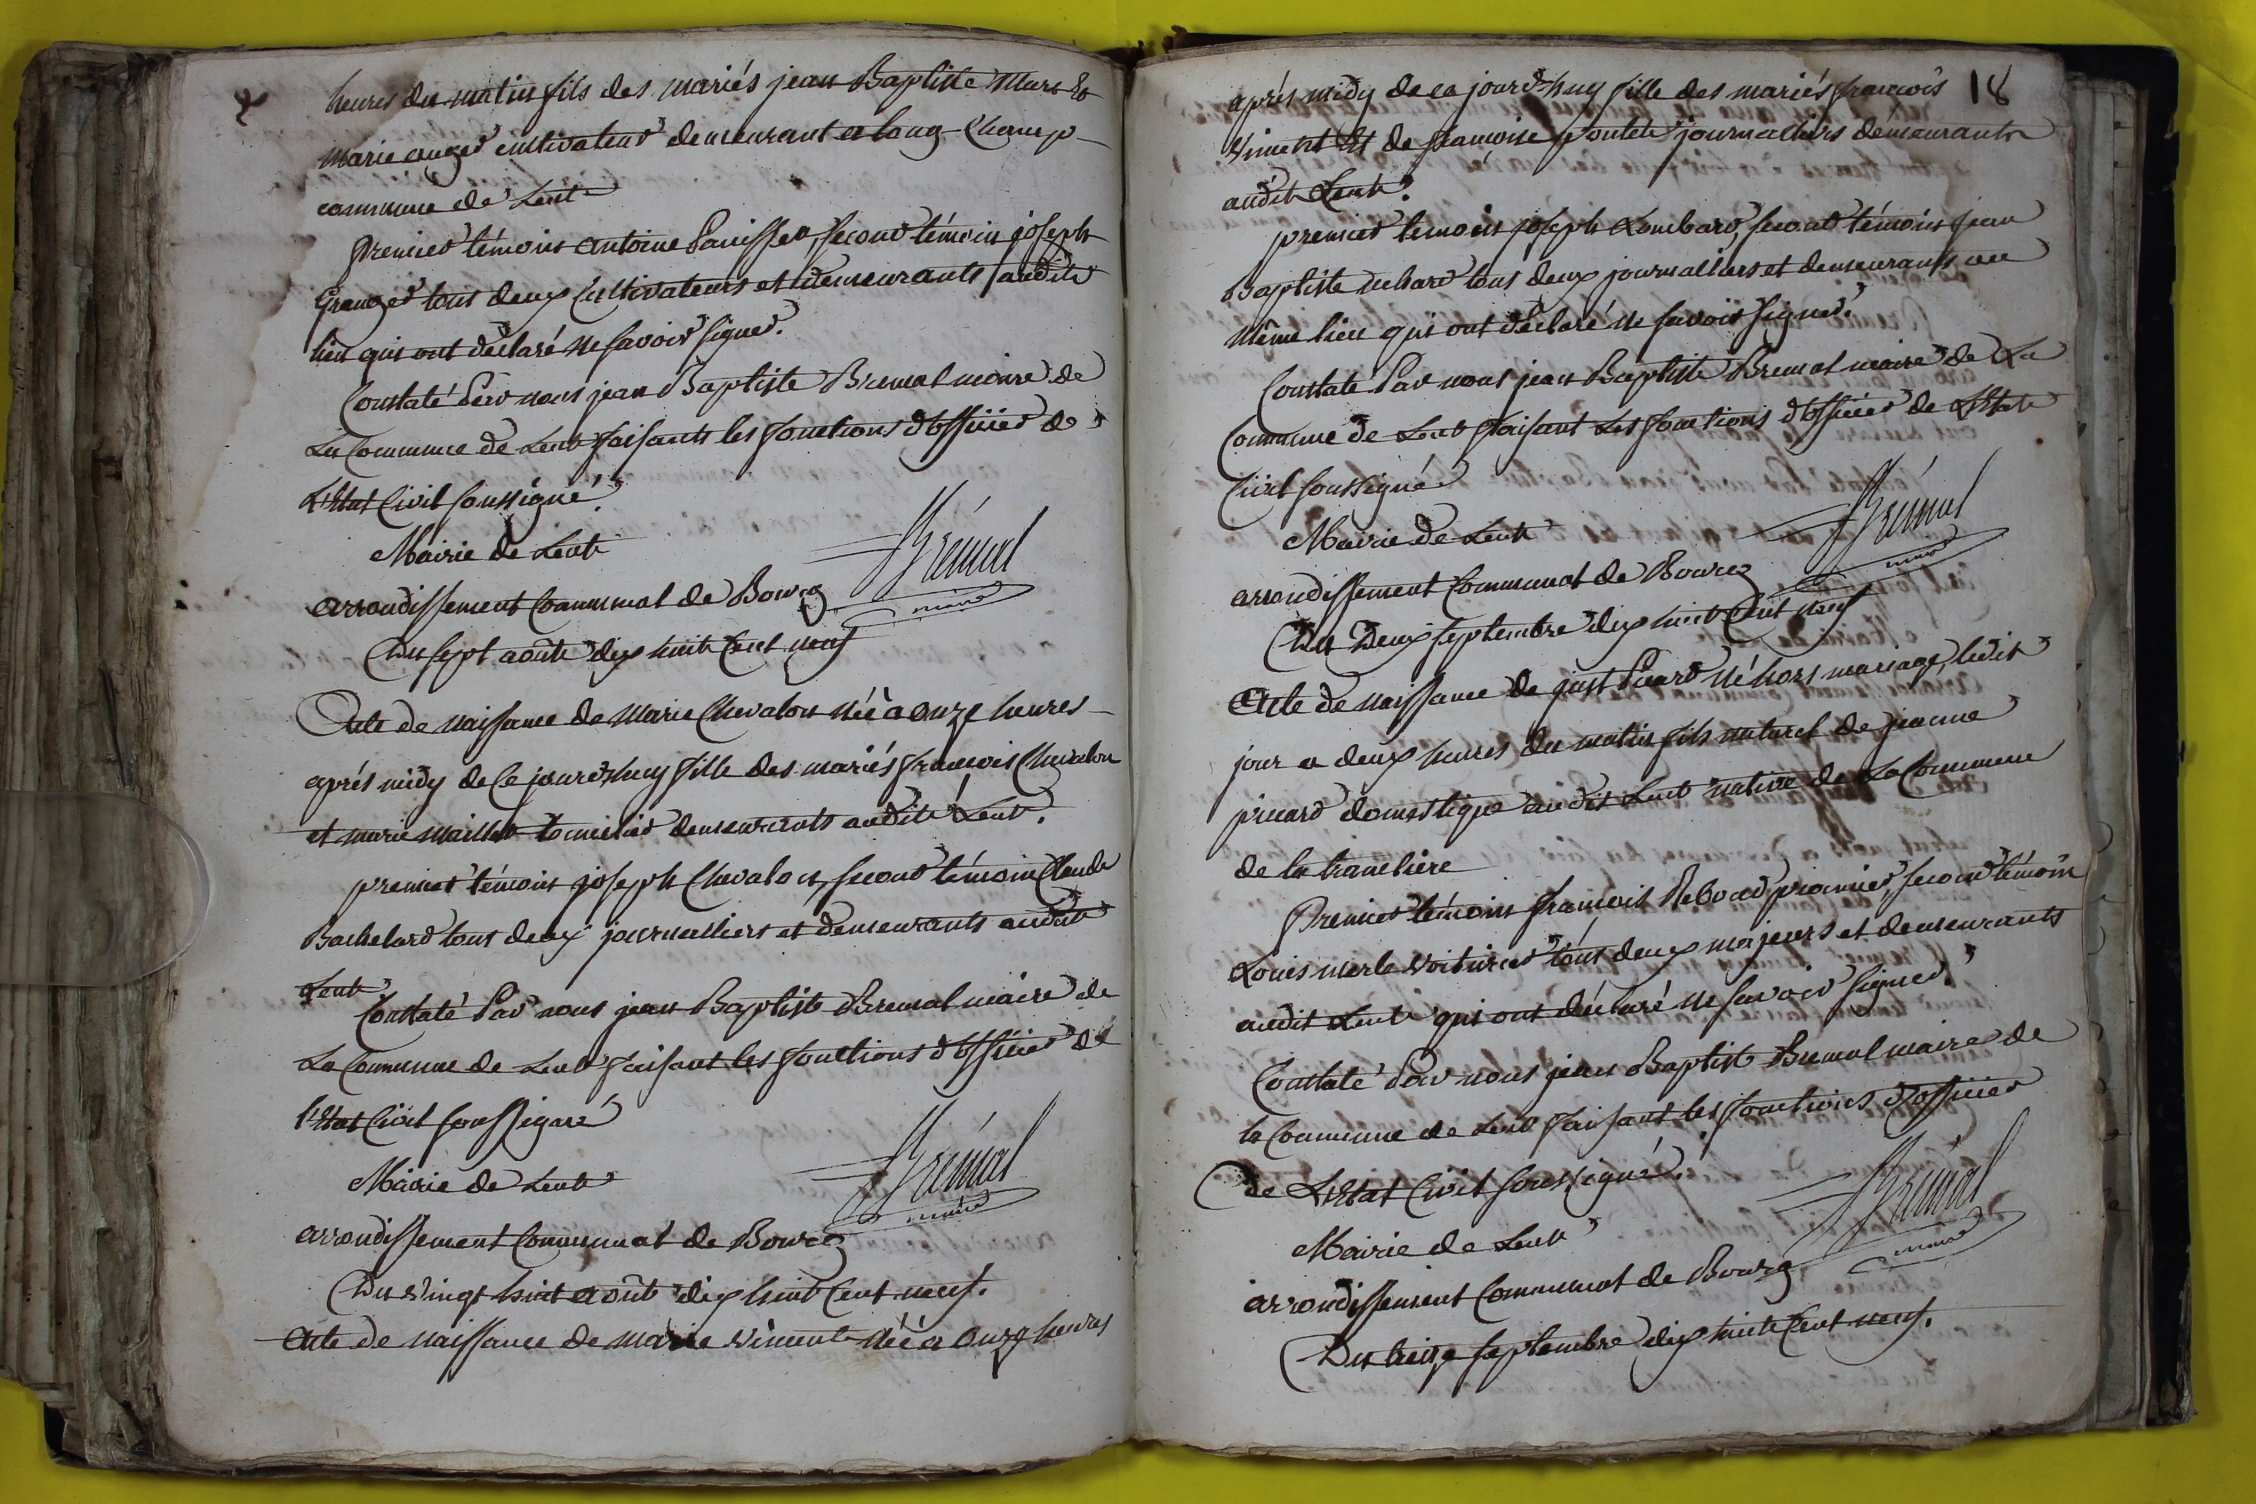 heures du matin fils des mariés jean Baptiste Mure Et
Marie auger cultivateur demeurant a long-Champ
commune de Lent
Premier témoin antoine Panisset, second témoin joseph
Granger tous deux Cultivateurs et demeurants audit
lieu qui ont déclaré ne savoir signer.
Constaté Par nous jean Baptiste Bremal maire de
La Commune de Lent faisants les fonctions d'officier de
L'Etat Civil soussigné.
Mairie de Lent
Brémal
maire
arrondissement Communal de Bourg
Du sept août dix huit Cent neuf
Acte de naissance de Marie Chevalon née a onze heures
aprés midy de Ce jourd'huy fille des mariés françois Chevalon
et marie maillet demeurants audit Lent.
premier témoin joseph Chevalon, second témoin Claude
Bachelard tous deux journalliers et demeurants audit
Lent
Constaté Par nous jean Baptiste Bremal maire de
La Commune de Lent faisant les fonctions d'officier de
l'Etat Civil soussigné
Mairie de Lent
Brémal
maire
arrondissement Communal de Bourg
Du vingt huit août dix huit Cent neuf.
Acte de naissance de marie viment née a onze heures
18
aprés midy de ca jourd'huy fille des mariés françois
viment Et de françoise poutet journalliers demeurants
audit Lent.
premier témoin joseph Lombard, second témoin jean
Baptiste tous deux journalliers et demeurants au
même lieu qui ont déclaré ne savoir signer.
Constaté Par nous jean Baptiste Bremal maire de La
Commune de Lent faisant Les fonctions d'officier de L'Etat
Civil soussigné
Mairie de Lent
Brémal
maire
arrondissement Communal de Bourg
Du Deux septembre dix huit Cent neuf
Acte de naissance de just Picard né hors mariage, ledit
jour a deux heures du matin fils naturel de jeanne
picard domestique audit Lent native de La Commune
de la tranclière
Premier témoin françois Reboud, second témoin
Louis merle voiturier tous deux majeurs et demeurants
audit Lent qui ont déclaré ne savoir signer.
Constaté Par nous jean Baptiste Bremal maire de
la Commune de Lent faisant les fonctions d'officier
de L'Etat Civil soussigné.
Mairie de Lent
Brémal
maire
arrondissement Communal de Bourg
Du treize septembre dix huit Cent neuf.